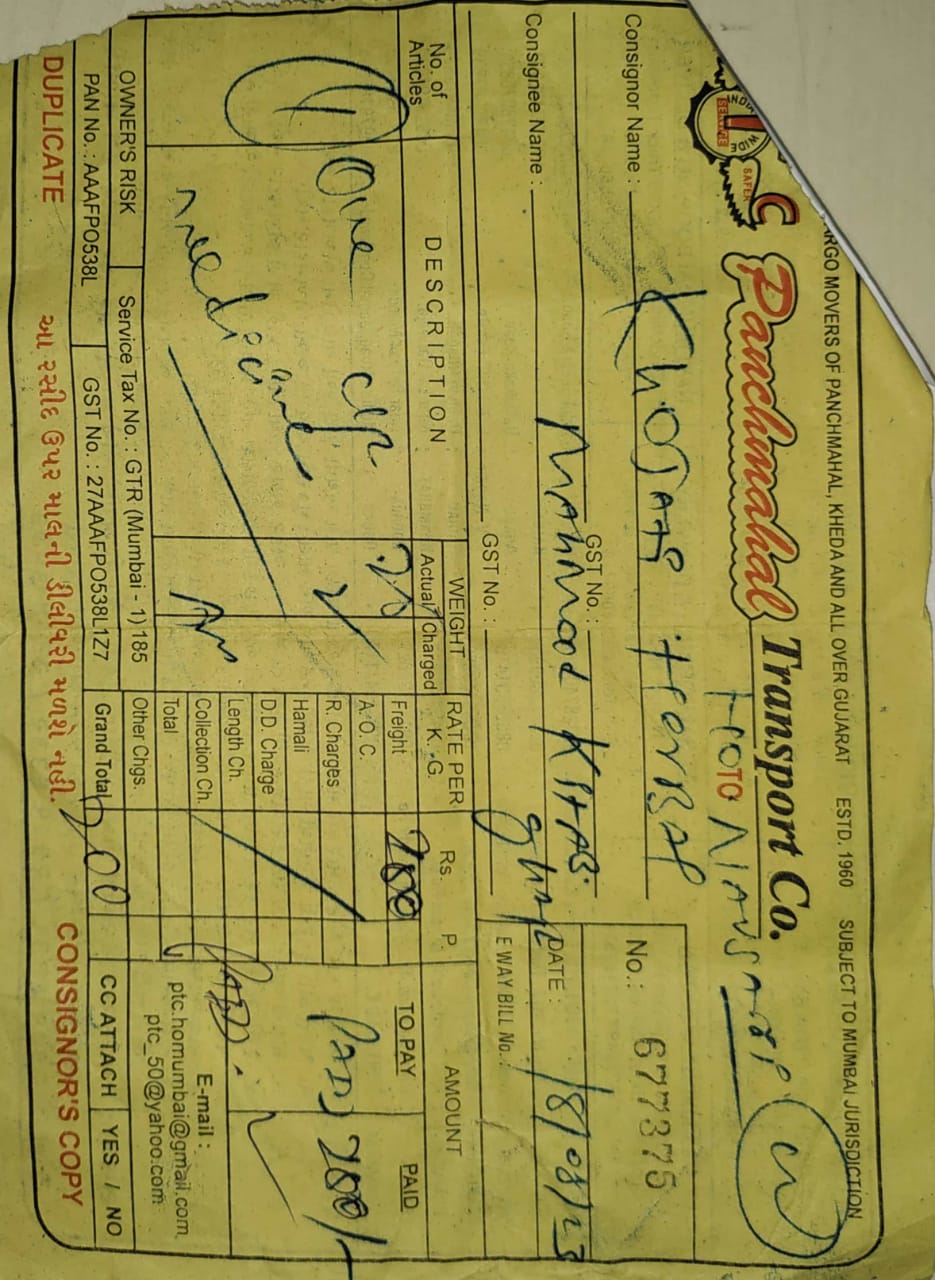 CARGO MOVERS OF PANCHMAHAL, KHEDA AND ALL OVER GUJARAT ESTD. 1960 SUBJECT TO MUMBAI JURISDICTION
INDIA WIDE SAFER SERVICE
Panchmahal Transport Co.
TO NAVSARI
Consignor Name : KHOJATI
No.: 677375
GST No. :
Consignee Name : MAHMood
DATE : 18/08/23
GST No. :
E WAY BILL No. :
No. of Articles DESCRIPTION WEIGHT RATE PER K. G. Rs. P. AMOUNT
Actual Charged TO PAY PAID
1 One
medicine
Freight 200 PAID 200/-
A. O. C.
R. Charges
Hamali
D.D. Charge
Length Ch.
Collection Ch. PAID.
Total
Other Chgs.
E-mail :
ptc.homumbai@gmail.com
ptc_50@yahoo.com
OWNER'S RISK Service Tax No. : GTR (Mumbai - 1) 185
PAN No. : AAAFPO538L GST No. : 27AAAFPO538L1Z7 Grand Total 200 CC ATTACH YES / NO
DUPLICATE આ રસીદ ઉપર માલની ડીલીવરી મળશે નહી. CONSIGNOR'S COPY